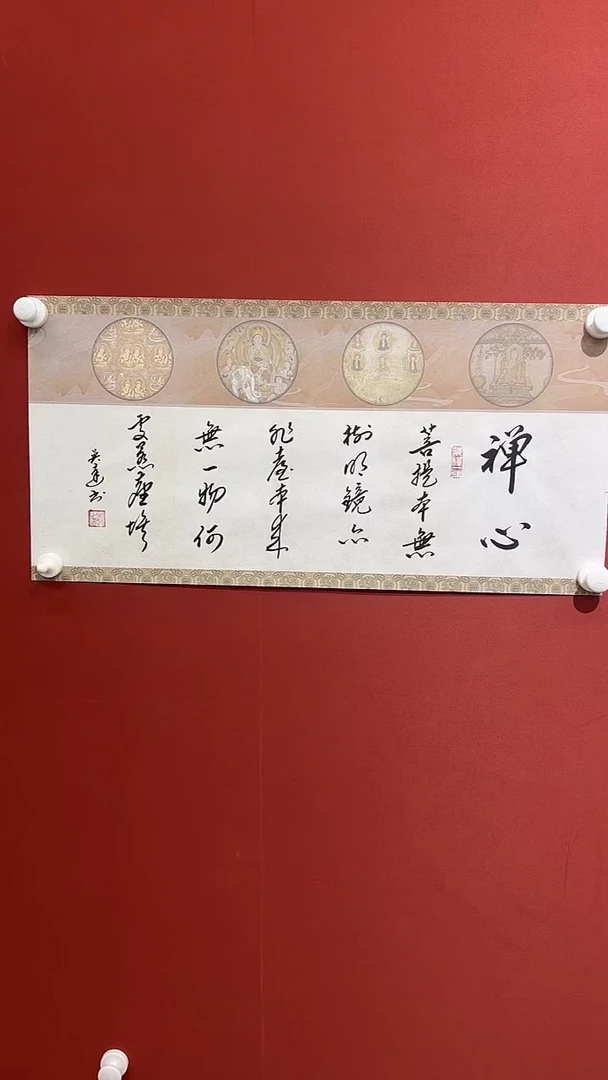 禅心
菩提本無
樹明鏡亦
非臺本来
無一物何
處惹塵埃